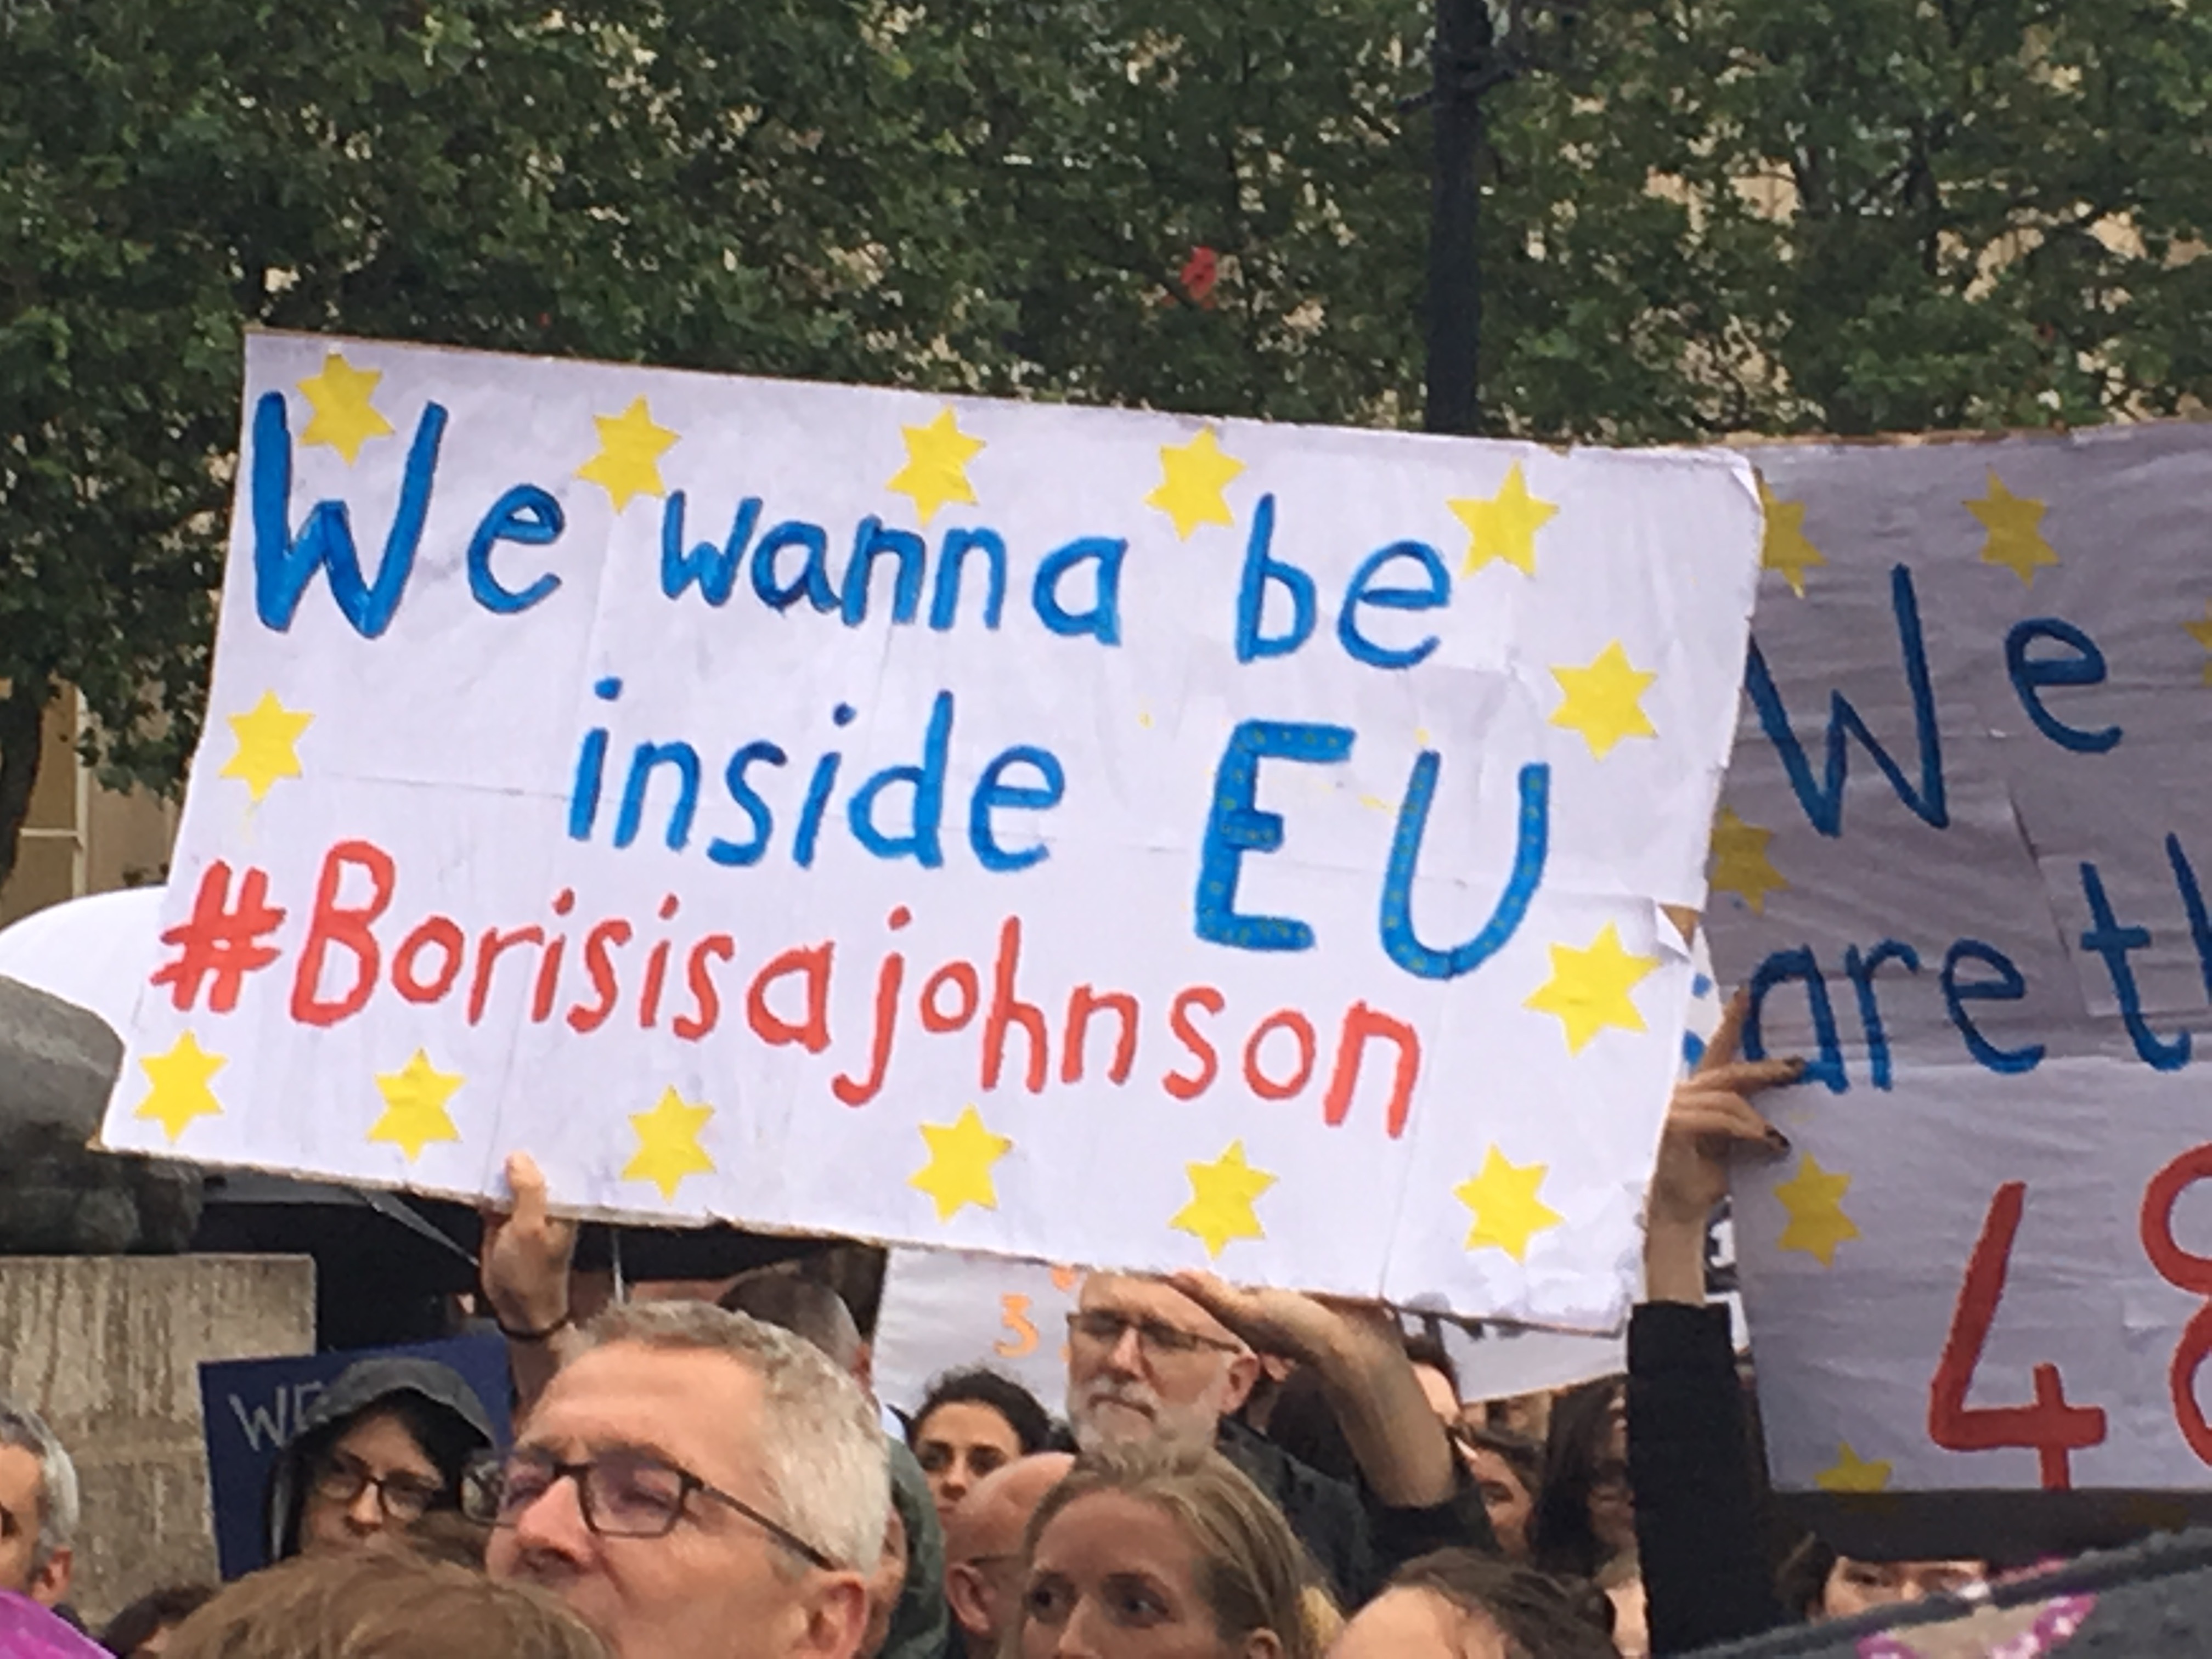 We wanna be
inside EU
#Borisisajohnson
We
are th
48
WE
3